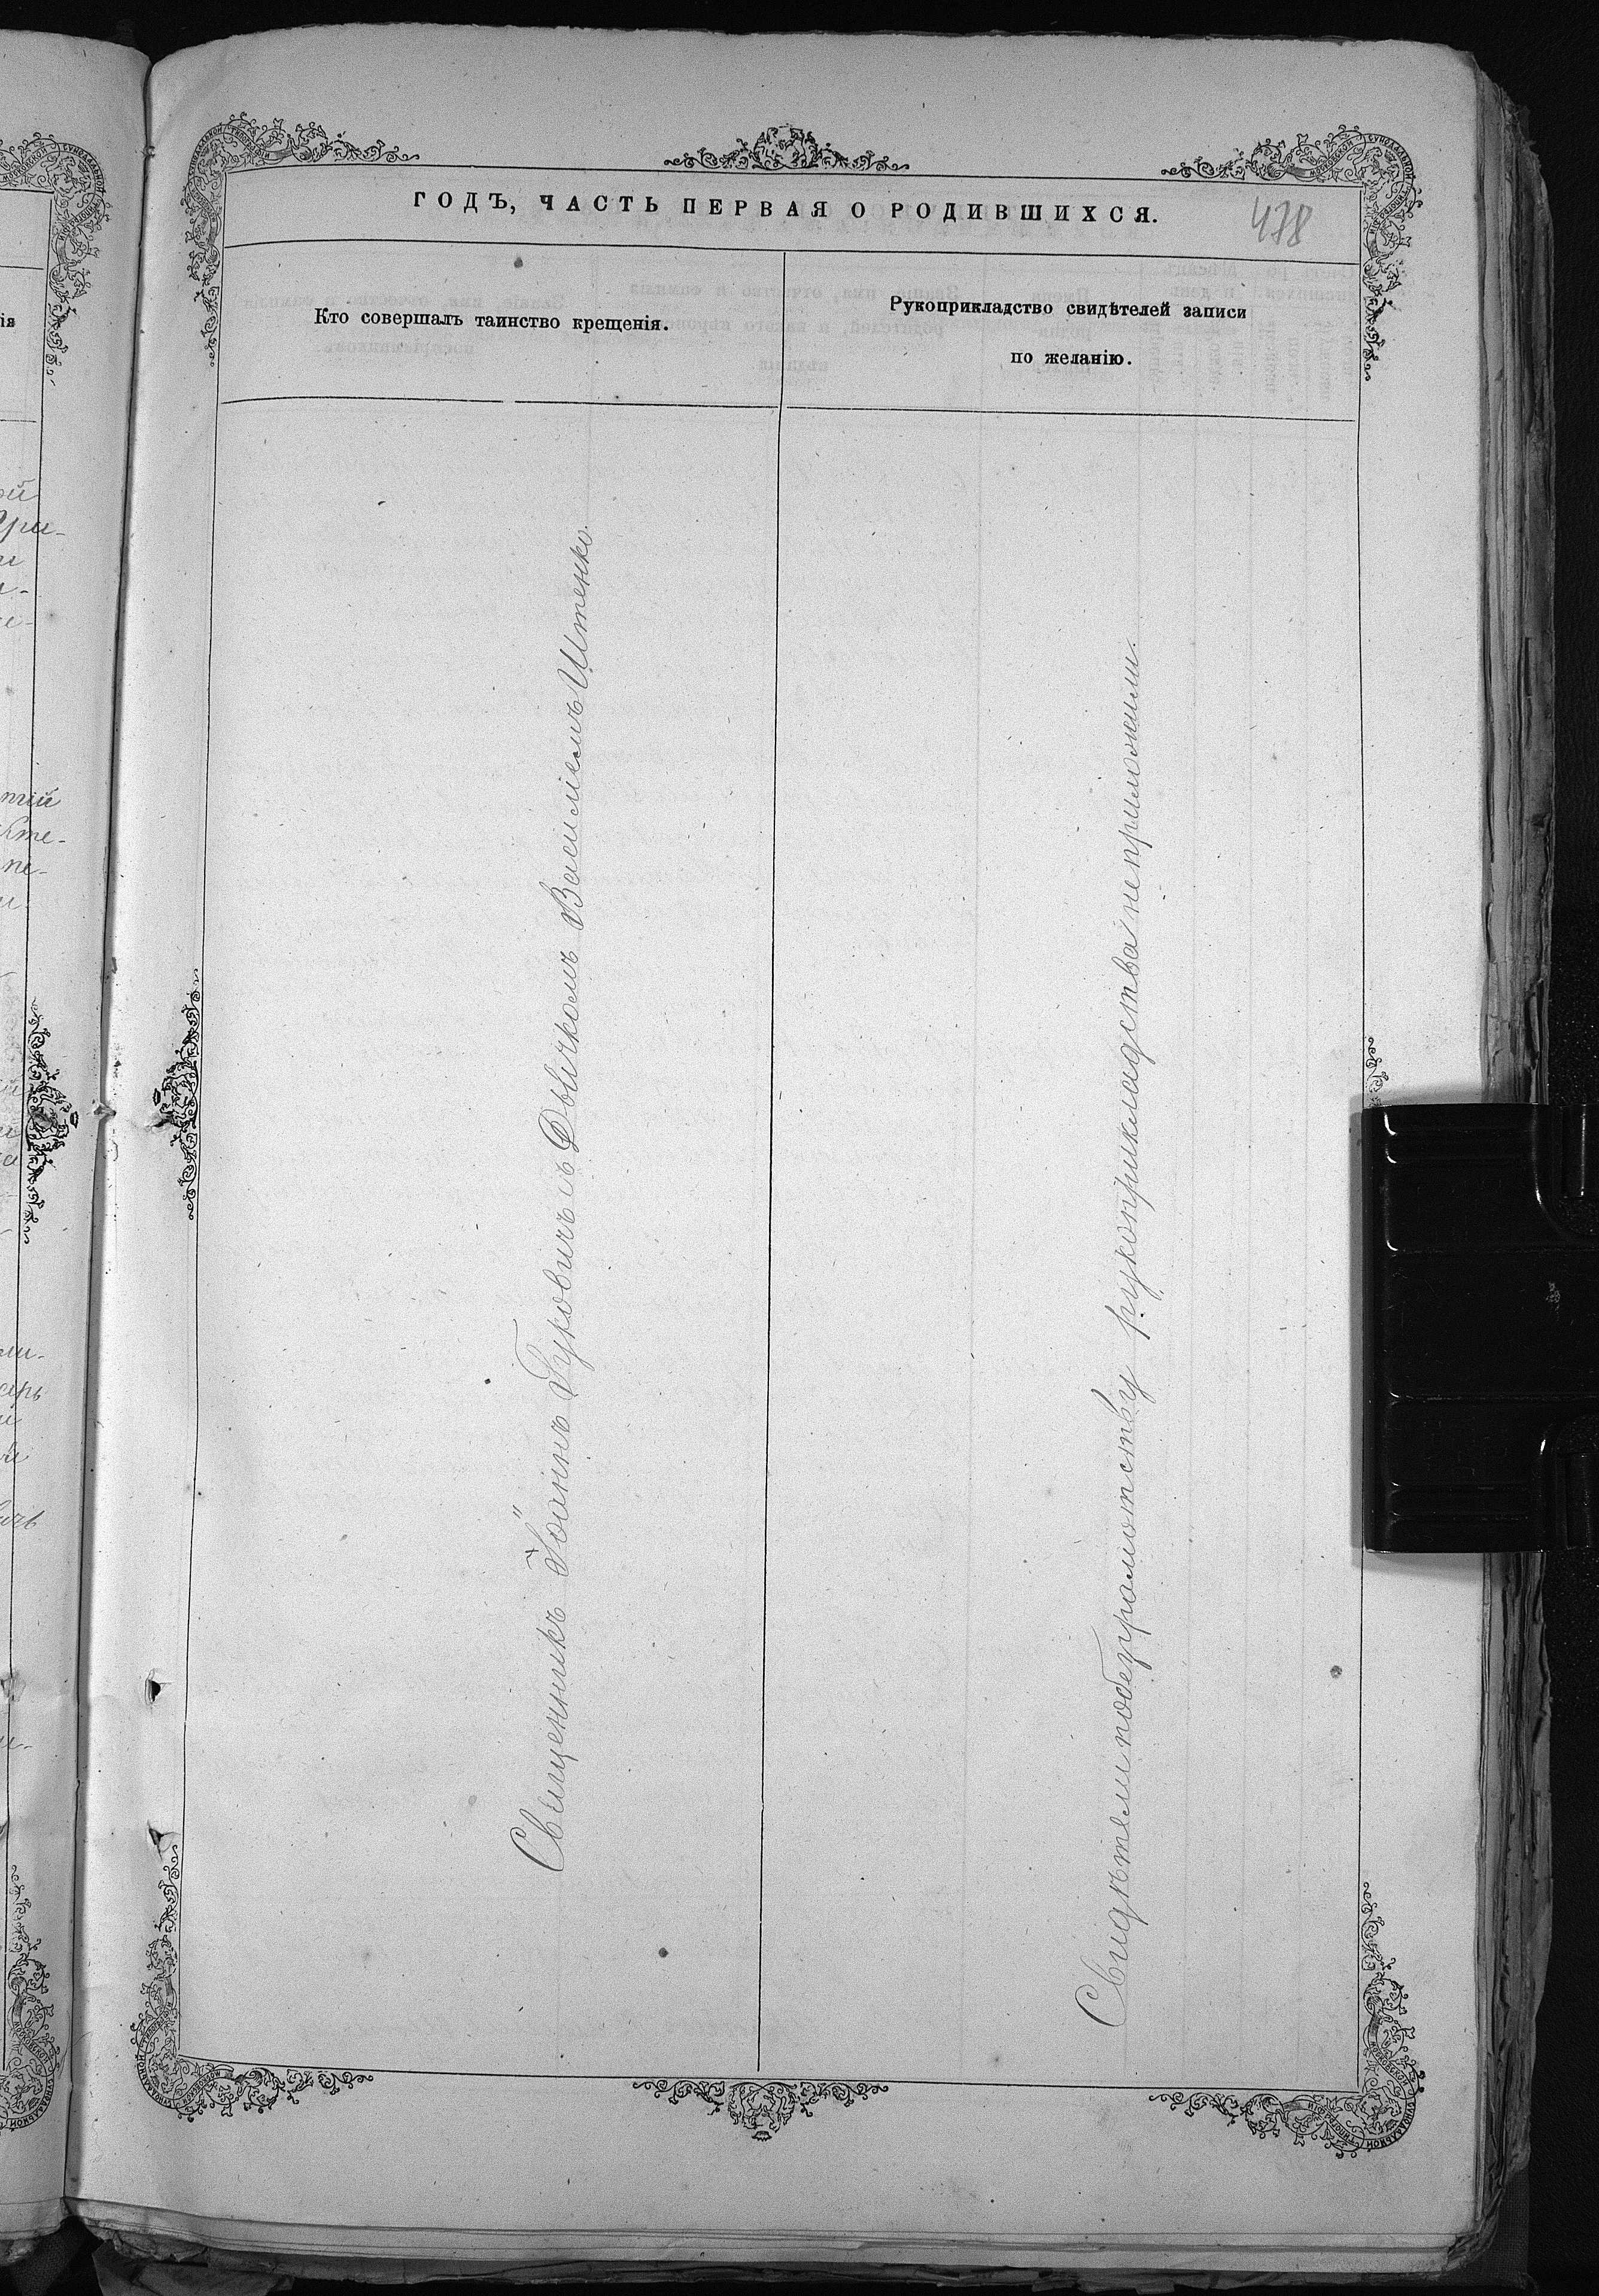 ГОДЪ, ЧАСТЬ ПЕРВАЯ О РОДИВШИХСЯ.
478
Кто совершалъ таинство крещенія.
Рукоприкладство свидѣтелей записи
по желанію.
Священникъ Іоаннъ Гуковичъ съ Дьячкомъ Василіемъ Итенко.
Свидѣтели по безграмотству рукоприкладства не приложили.